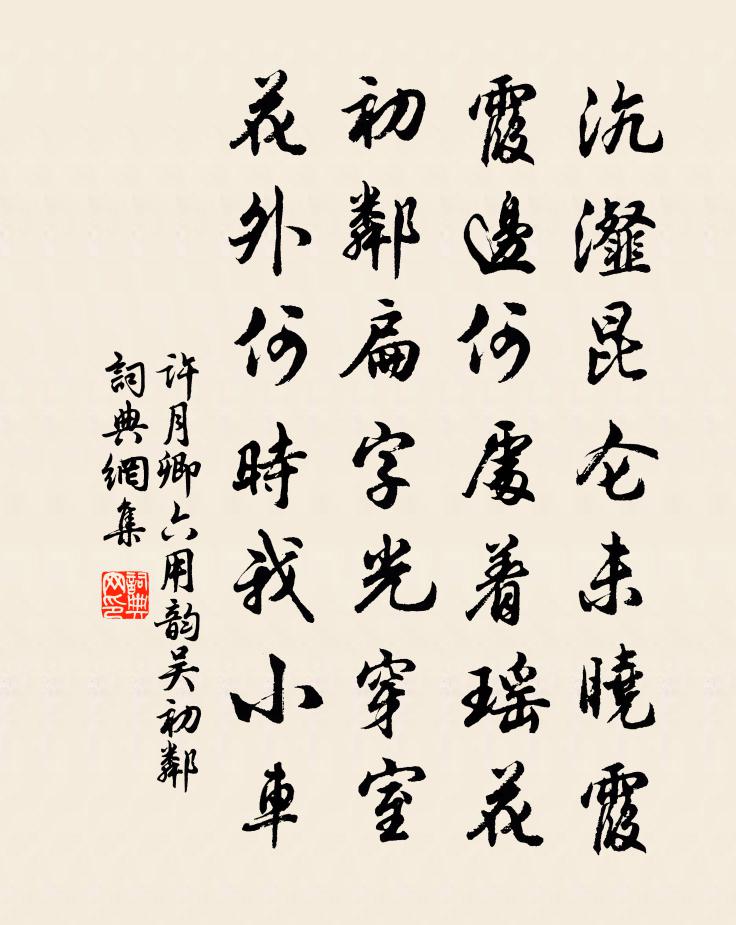 沆瀣昆仑未曉霞
霞邊何處着瑶花
初鄰扁字光穿室
花外何時我小車
許月卿六用韵吴初鄰
詞典網集
詞典网印